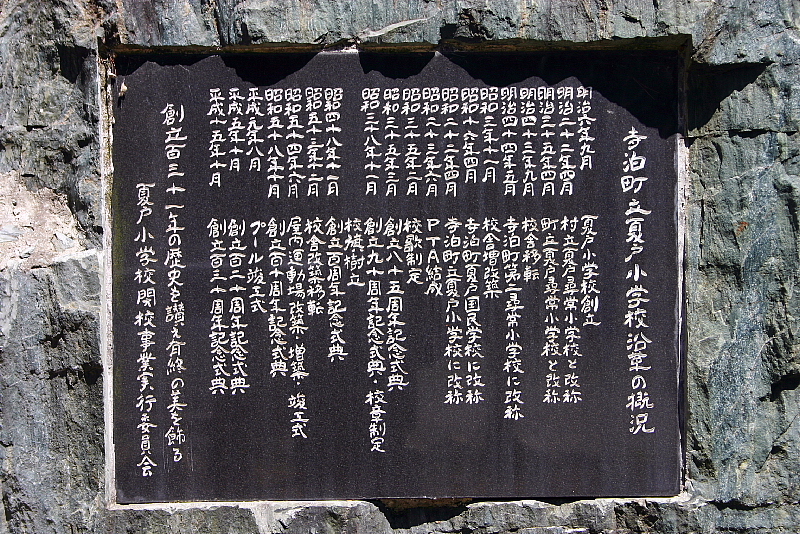 寺泊町立夏戸小学校沿革の概況
明治六年九月 夏戸小学校創立
明治二十二年四月 村立夏戸尋常小学校と改称
明治三十五年四月 町立夏戸尋常小学校と改称
明治四十三年九月 校舎移転
明治四十四年五月 寺泊町第二尋常小学校に改称
昭和三年十一月 校舎増改築
昭和十六年四月 寺泊町夏戸国民学校に改称
昭和二十二年四月 寺泊町立夏戸小学校に改称
昭和二十三年六月 PTA結成
昭和三十五年二月 校歌制定
昭和三十五年三月 創立八十五周年記念式典
昭和三十八年十一月 創立九十周年記念式典・校章制定
校旗樹立
昭和四十八年十一月 創立百周年記念式典
昭和五十三年十二月 校舎改築移転
昭和五十四年六月 屋内運動場改築・増築・竣工式
昭和五十八年十月 創立百十周年記念式典
平成元年八月 プール竣工式
平成五年十月 創立百二十周年記念式典
平成十五年十月 創立百三十周年記念式典
創立百三十一年の歴史を讃え有終の美を飾る
夏戸小学校閉校事業実行委員会